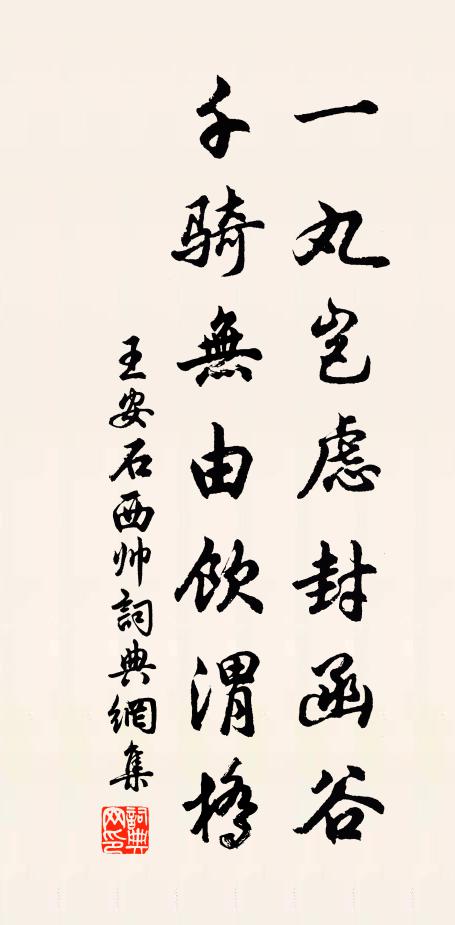 一丸豈慮封函谷
千騎無由飲渭橋
王安石西帅詞典網集
詞典网印